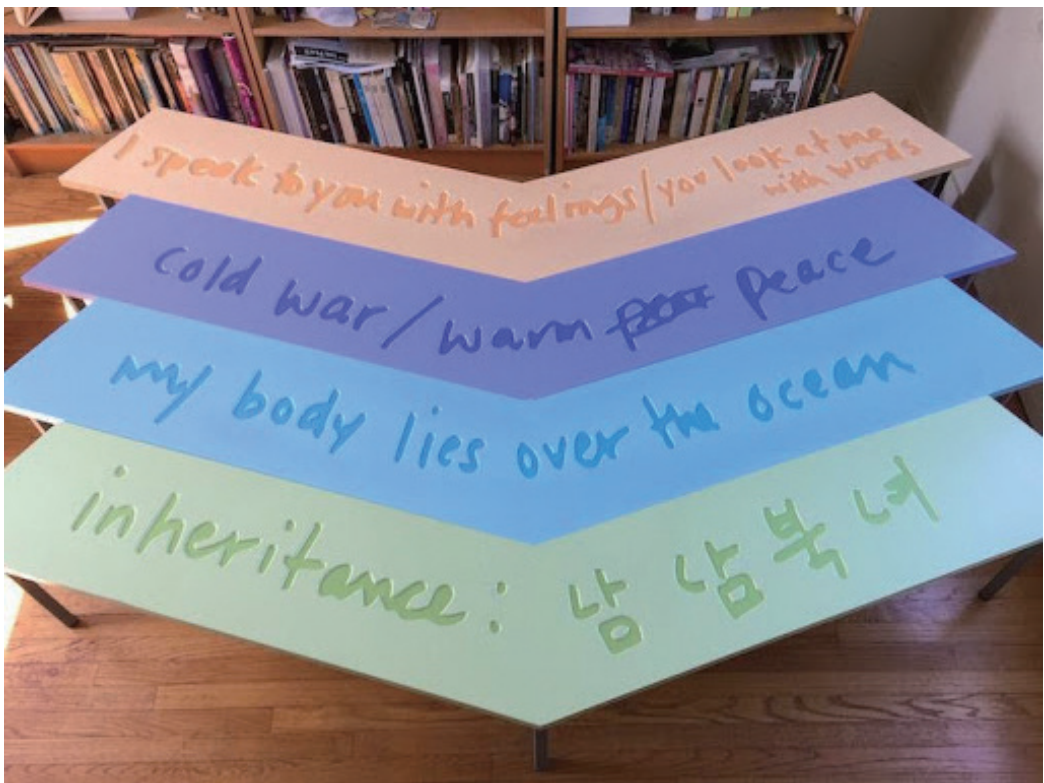 I speak to you with feelings/you look at me
with words
cold war/warm peace
my body lies over the ocean
inheritance: 남남북녀